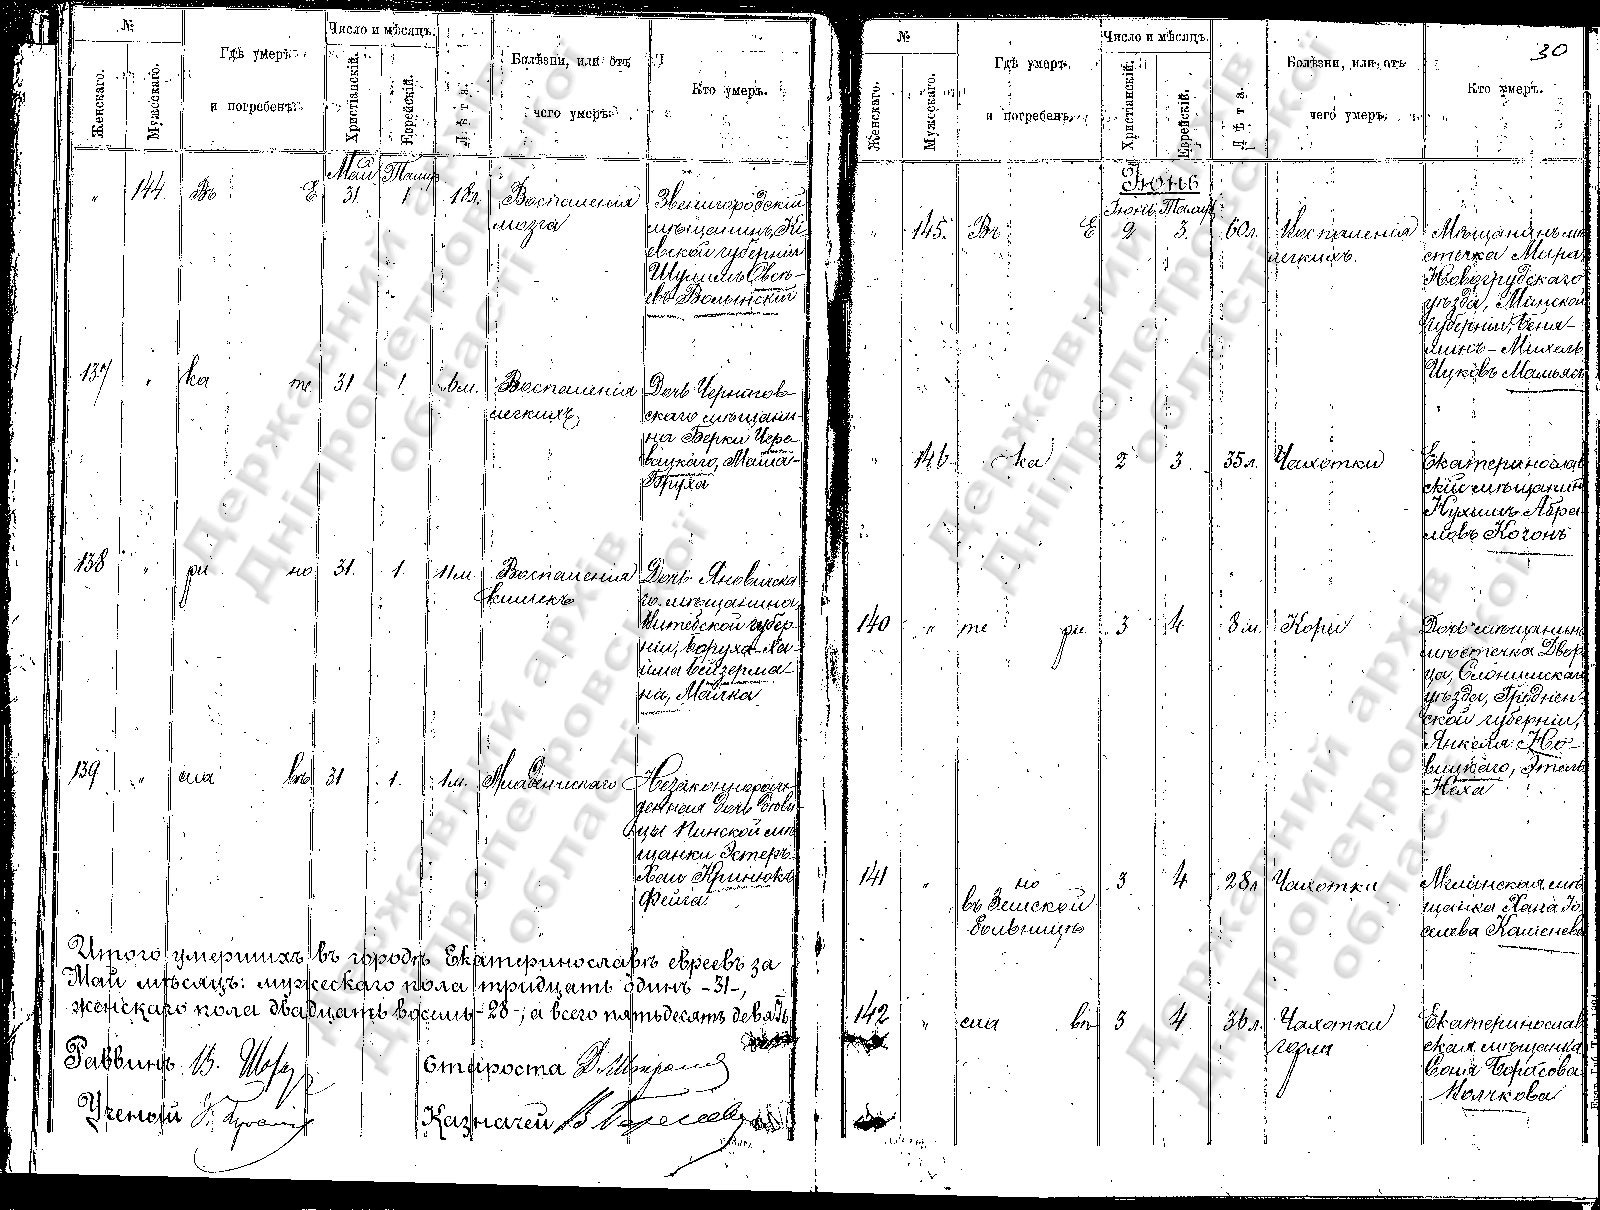 №
Женскаго.
Мужескаго.
Гдѣ умеръ
и погребенъ
Число и мѣсяцъ.
Христіанскій.
Еврейскій.
Лѣта.
Болѣзни, или отъ
чего умеръ.
Кто умеръ.
Май Тамуз
„ 144 Въ Е 31 1 18л. Воспаленія
мозга
Звенигородскій
мѣщанинъ, Кі
евской губерніи
Шулимъ
евъ Волынскій
137 „ ка те 31 1 6м. Воспаленія
легкихъ
Дочь Чернигов-
скаго мѣщани-
на Берки Чере
вацкаго, Маша-
Бруха
138 „ ри но 31. 1. 11м. Воспаленія
кишекъ
Дочь Яновичска
го мѣщанина,
Витебской губер
ніи, Боруха-Ха
има Бейзерма-
на, Малка
139 „ сла вѣ 31 1. 1м. Младенческаго
Незаконнорож-
денная дочь вдови-
цы Пинской мѣ
щанки Эстеръ-
Хаи Кринюкъ
Фейга
Итого умершихъ въ городѣ Екатеринославѣ евреевъ за
Май мѣсяцъ: мужескаго пола тридцать одинъ -31-,
женскаго пола двадцать восемь -28-; а всего пятьдесятъ девять
Раввинъ В. Староста
Ученый Казначей В
30
№
Женскаго.
Мужескаго.
Гдѣ умеръ.
и погребенъ.
Число и мѣсяцъ.
Христіанскій.
Еврейскій.
Лѣта.
Болѣзни, или отъ
чего умеръ.
Кто умеръ.
Іюнь
Іюнь Тамуз
„ 145. Въ Е 2 3. 60л. Воспаленія
легкихъ.
Мѣщанинъ мѣ
стечка Мира,
Новогрудскаго
уѣзда, Минской
губерніи, Беня-
минъ-Михель
Ицковъ
„ 146 ка 2 3. 35л. Чахотки
Екатеринослав
скій мѣщанинъ
Нухимъ Абра
мовъ Коганъ
140 „ те ри 3 4 8м. Кори
Дочь мѣщанина
мѣстечка Двор
ца, Слонимскаго
уѣзда, Гроднен-
ской губерніи,
Янкеля Но-
вицкаго, Этель
Неха
141 „ но 3 4 28л Чахотки
въ Земской
больницѣ
Мглинская мѣ
щанка Хана Іо
селева Каменева
142 „ сла вѣ 3 4 36л. Чахотки
горла
Екатеринослав
ская мѣщанка
Соня Борисова
Молчкова
Державний архів
Дніпропетровської
області